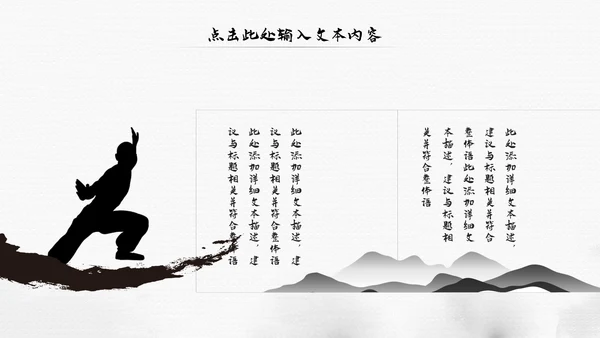 点击此处输入文本内容
此处添加详细文本描述，
建议与标题相关并符合
整体语此处添加详细文
本描述，建议与标题相
关并符合整体语
此处添加详细文本描述，建
议与标题相关并符合整体语
此处添加详细文本描述，建
议与标题相关并符合整体语